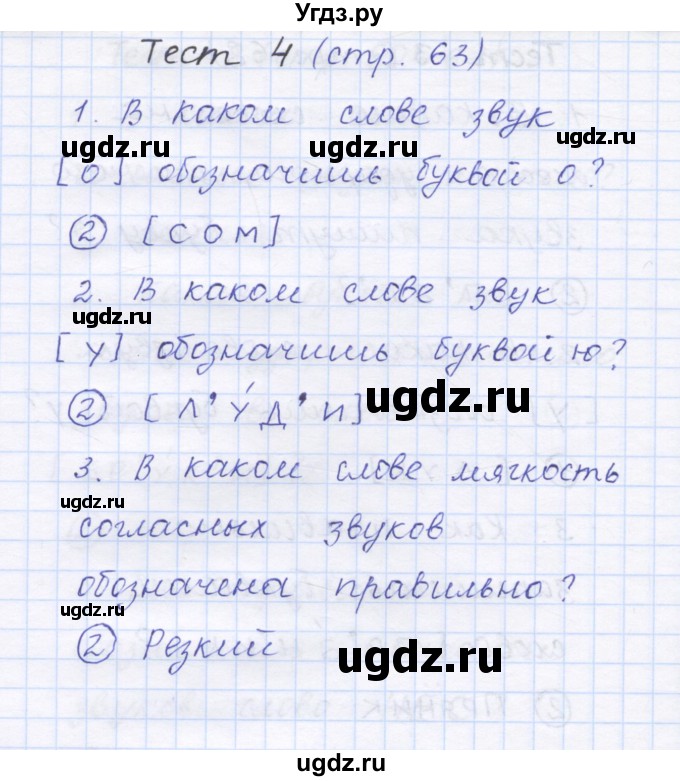 Угдз.ру
Тест 4 (стр. 63)
1. В каком слове звук
ugdz.ru ugdz.ru ugdz.ru
[о] обозначишь буквой о?
② [сом]
2. В каком слове звук
ugdz.ru
[у] обозначишь буквой ю?
② [л'у́д'и] ugdz.ru
3. В каком слове мягкость
ugdz.ru
согласных звуков
обозначена правильно?
ugdz.ru
② Резкий ugdz.ru
ugdz.ru ugdz.ru